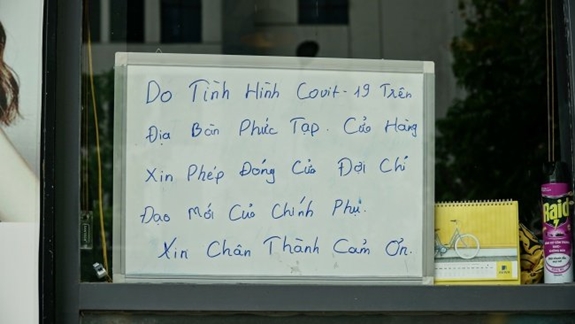 Do Tình Hình Covit-19 Trên
Địa Bàn Phức Tạp. Cửa Hàng
Xin Phép Đóng Cửa Đợi Chỉ
Đạo Mới Của Chính Phủ.
Xin Chân Thành Cảm Ơn.
Raid